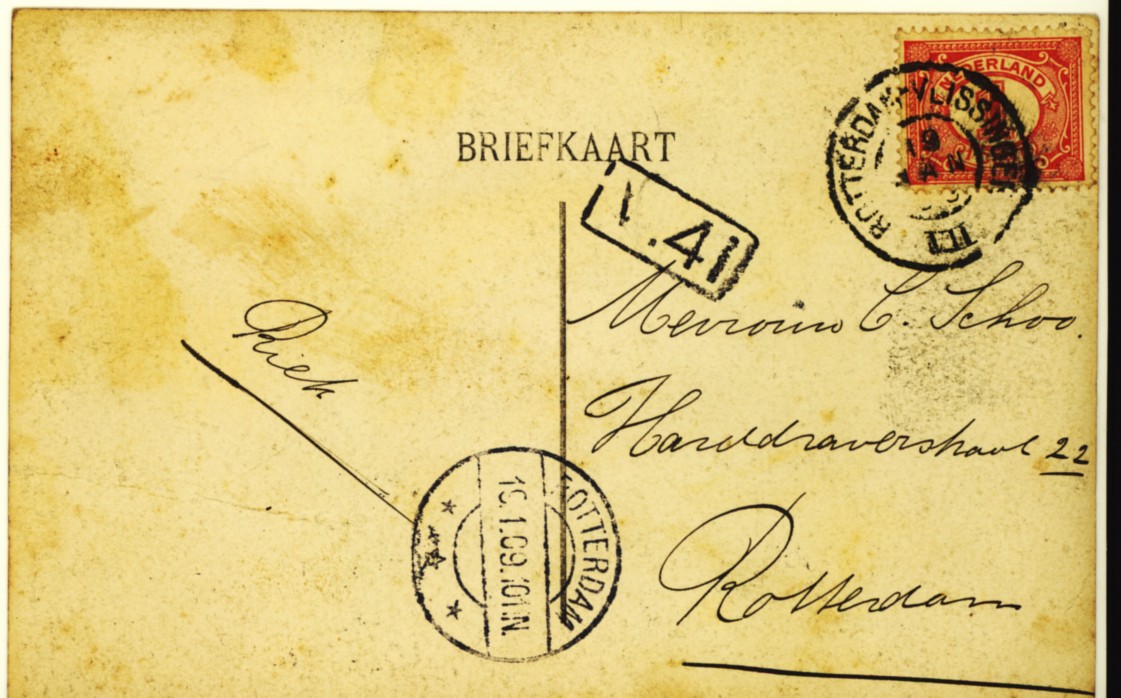 BRIEFKAART
NEDERLAND
ROTTERDAM-VLISSINGEN
19
JAN
III
V.41
Mevrouw C. Schoo.
Harddraverstraat 22
Rotterdam
Riek
ROTTERDAM
19.1.09.10